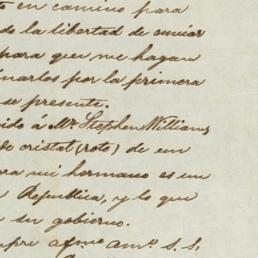 en camino para
do la libertad de enviar
para que me hagan
inarlos por la primera
se presente.
ido á Mr Stephen Williams
de cristal (roto) de un
ara mi hermano es un
República, y lo que
su gobierno.
pre afmo amº. S. S.